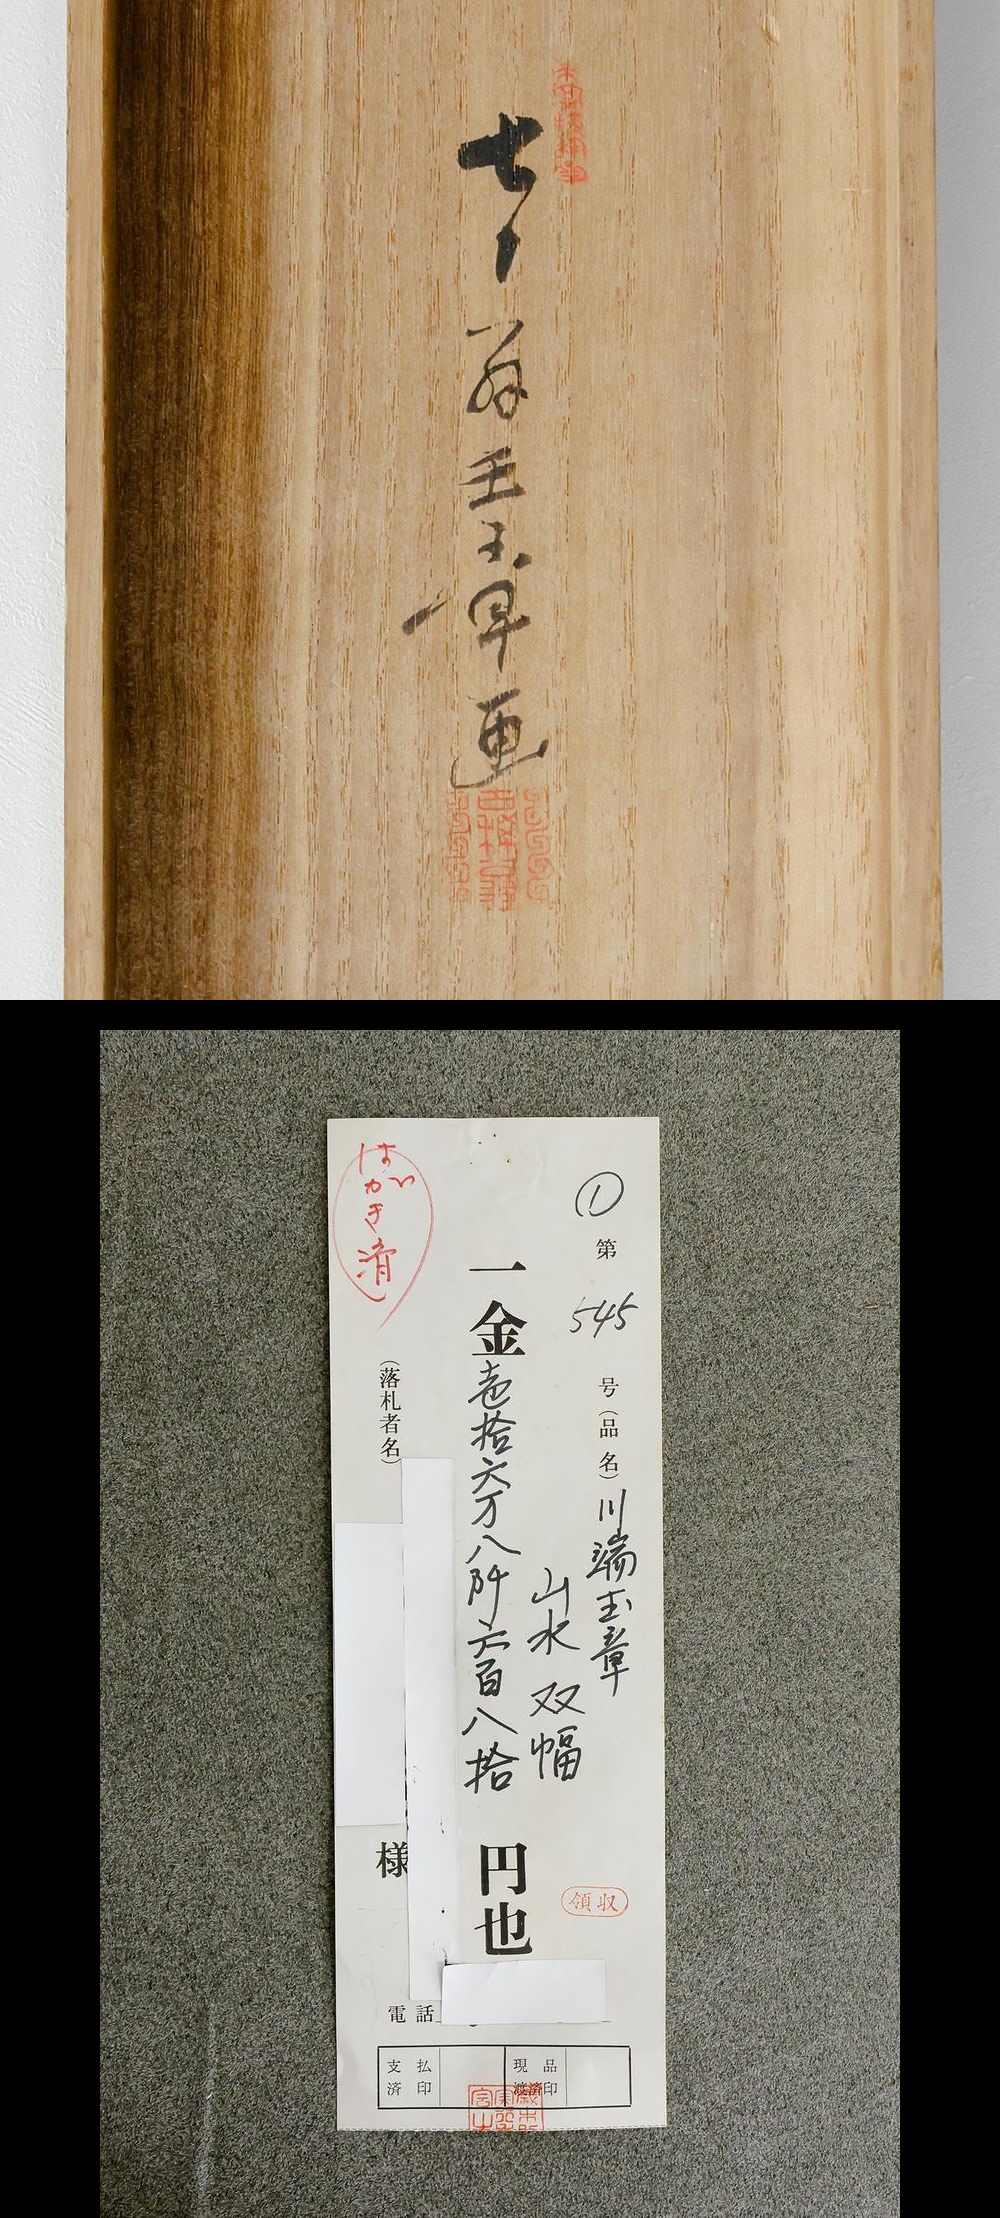 七十一翁玉章画
①
第545号(品名)川端玉章
山水 双幅
一金壱拾六万八阡六百八拾円也
領収
(落札者名)
様
電話
はがき済
支払済印
現品渡済印